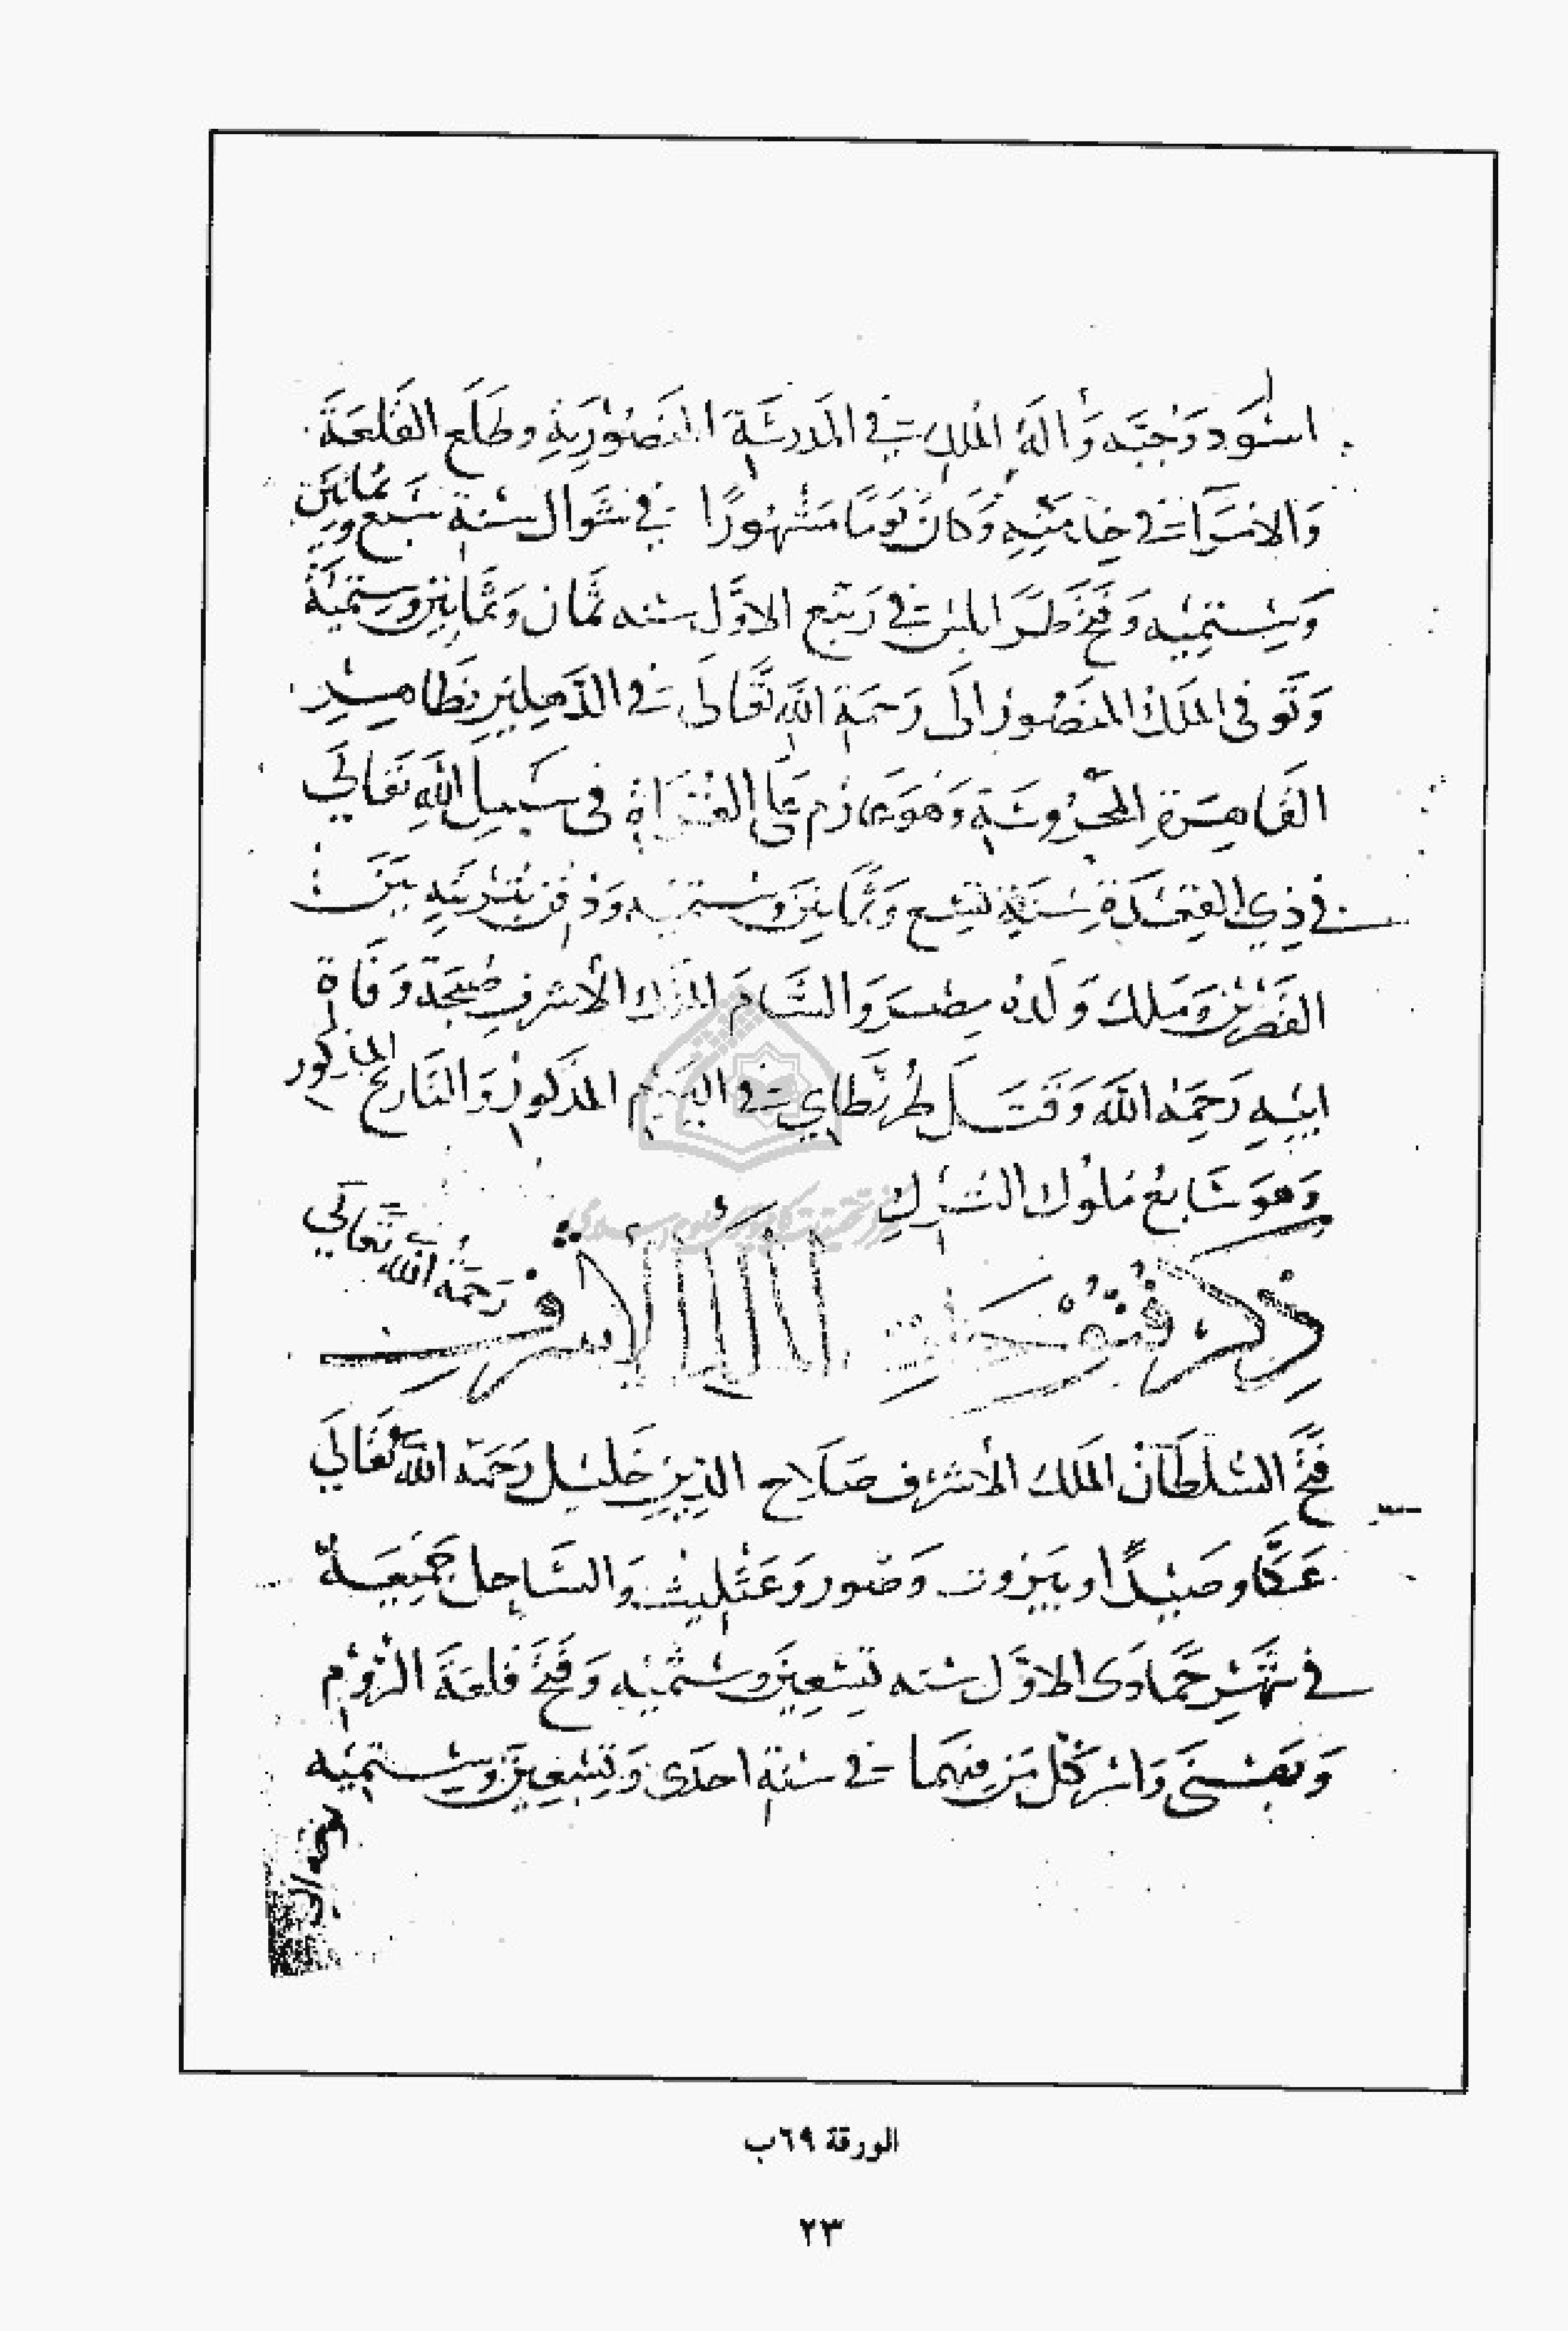 اسود وجبه وآلة الملك في المدرسة المنصورية وطلع القلعة
والامرآ في خدمته وكان يوما مشهورا في شوال سنة سبع وثمانين
وستميه وفتح طرابلس في ربيع الاول سنه ثمان وثمانين وستمية
وتوفى الملك المنصور الى رحمة الله تعالى في الدهليز بظاهر
القاهرة المحروسة وهو عازم على الغزاة فى سبيل الله تعالى
في ذي القعدة سنة تسع وثمانين وستميه ودفن بتربته بين
القصرين وملك ولده بمصر والشام الملك الأشرف صبيحة وفاة
ابيه رحمه الله وقتل طرنطاي في اليوم المذكور والتاريخ المذكور
وهو سابع ملوك الترك
ذكر فتوحات الملك الاشرف رحمه الله تعالى
فتح السلطان الملك الأشرف صلاح الدين خليل رحمه الله تعالى
عكا وصيدا وبيروت وصور وعثليث والساحل جميعه
في شهر جمادى الاول سنه تسعين وستميه وفتح قلعة الروم
وبهسنى واسر كل من فيهما في سنة احدى وتسعين وستميه
الورقة ٦٩ب
٢٣